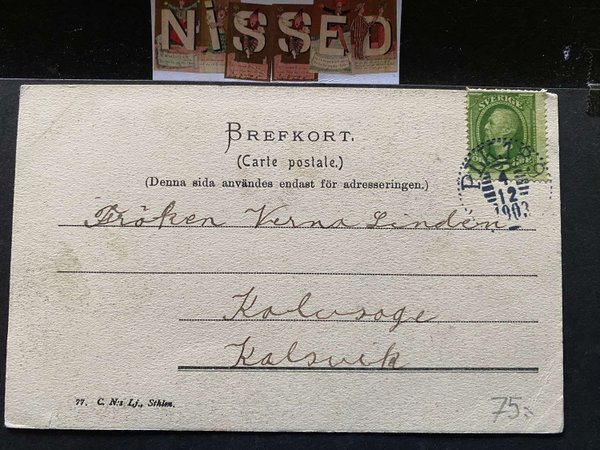 NiSSED
BREFKORT.
SVERIGE
(Carte postale.)
(Denna sida användes endast för adresseringen.)
4
12
1903
Fröken Verna Lindén
Kalvsoge
Kalsvik
77. C. N:s Lj., Sthlm.
75:-